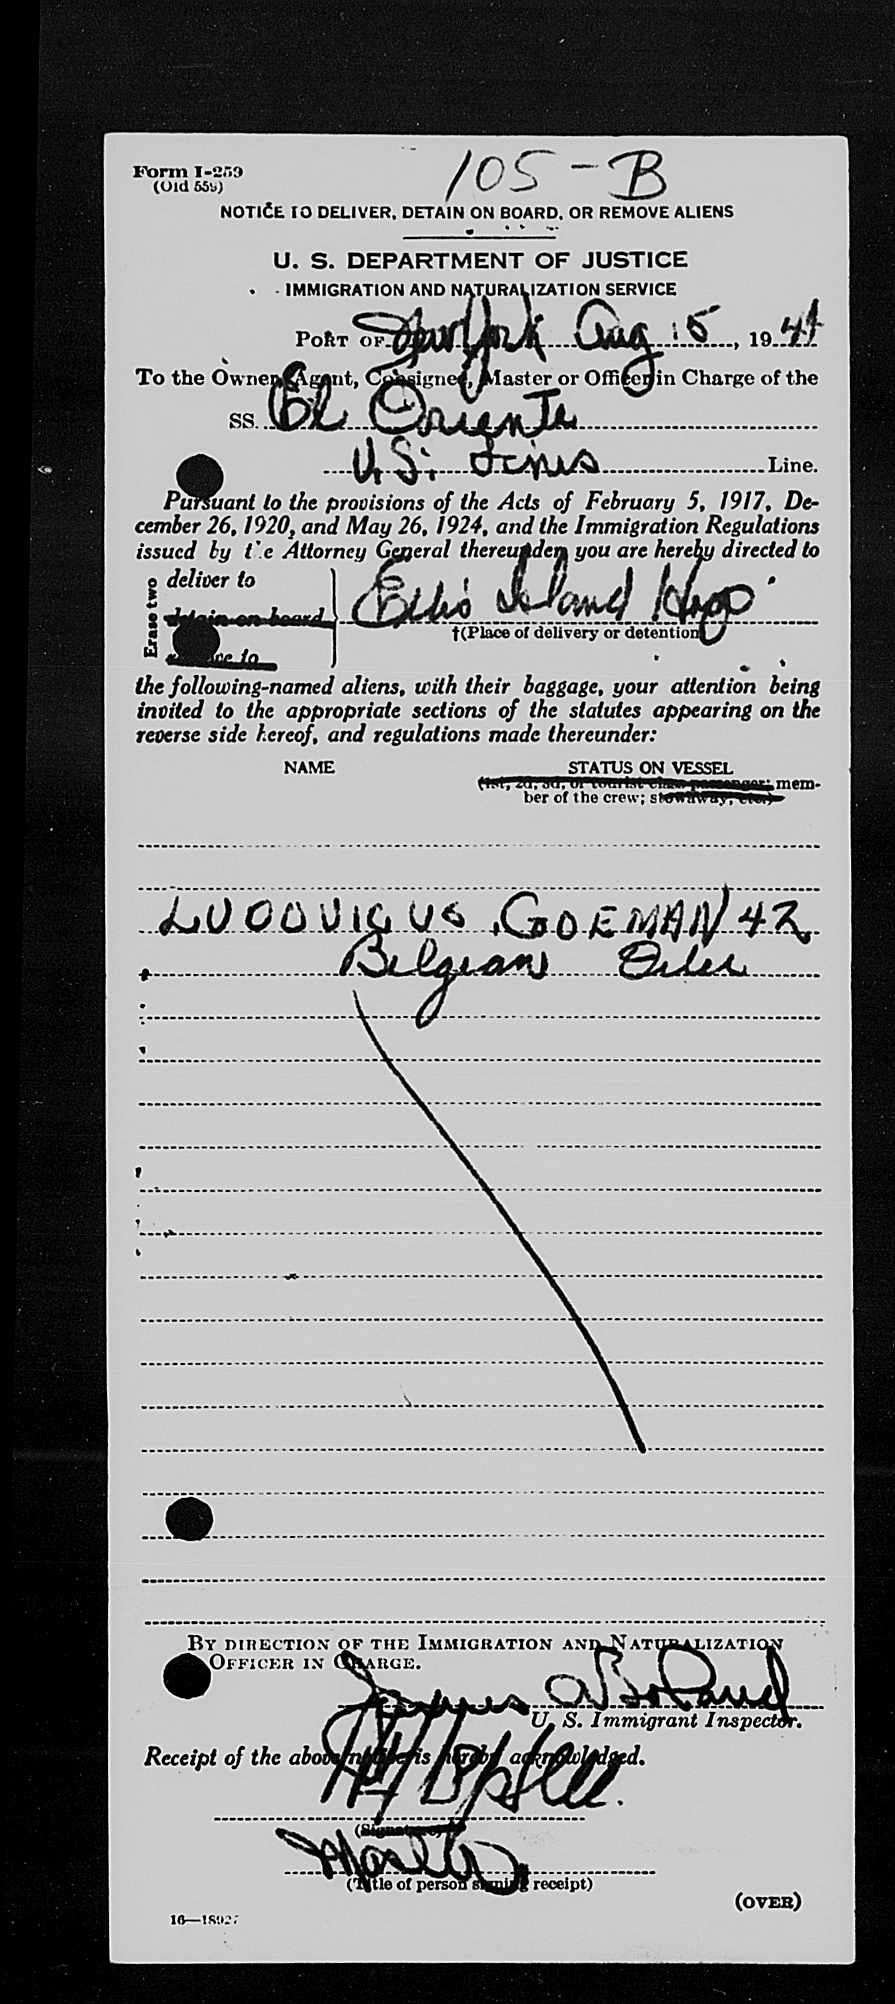 105-B
Form I-259
(Old 559)
NOTICE TO DELIVER, DETAIN ON BOARD, OR REMOVE ALIENS
U. S. DEPARTMENT OF JUSTICE
IMMIGRATION AND NATURALIZATION SERVICE
PORT OF New York Aug 15, 1944
To the Owner, Agent, Consignee, Master or Officer in Charge of the
SS. El Oriente
U.S. Lines Line.
Pursuant to the provisions of the Acts of February 5, 1917, De-
cember 26, 1920, and May 26, 1924, and the Immigration Regulations
issued by the Attorney General thereunder, you are hereby directed to
Erase two
deliver to
detain on board
remove to
Ellis Island Hosp
†(Place of delivery or detention)
the following-named aliens, with their baggage, your attention being
invited to the appropriate sections of the statutes appearing on the
reverse side hereof, and regulations made thereunder:
NAME STATUS ON VESSEL
(1st, 2d, 3d, or tourist class passenger; mem-
ber of the crew; stowaway, etc.)
LUDOVICUS GOEMAN 42
Belgian Oiler
BY DIRECTION OF THE IMMIGRATION AND NATURALIZATION
OFFICER IN CHARGE.
James A Boland
U. S. Immigrant Inspector.
Receipt of the above notice is hereby acknowledged.
(Signature)
Master
(Title of person signing receipt)
(OVER)
16—18927